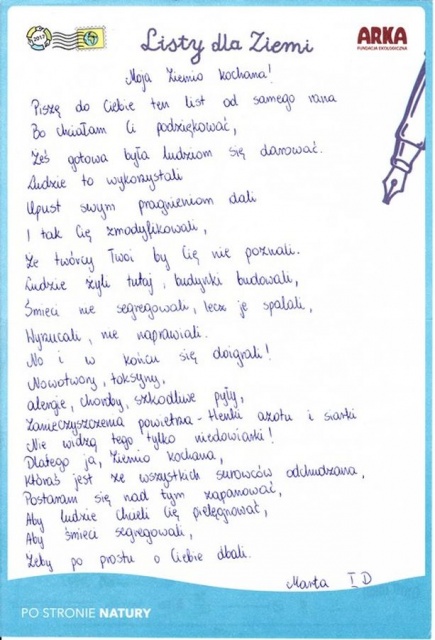 2013
Listy dla Ziemi
ARKA
FUNDACJA EKOLOGICZNA
Moja Ziemio kochana!
Piszę do Ciebie ten list od samego rana
Bo chciałam Ci podziękować,
Żeś gotowa była ludziom się darować.
Ludzie to wykorzystali
Upust swym pragnieniom dali
I tak Cię zmodyfikowali,
Że twórcy Twoi by Cię nie poznali.
Ludzie żyli tutaj, budynki budowali,
Śmieci nie segregowali, lecz je spalali,
Wyrzucali, nie naprawiali.
No i w końcu się doigrali!
Nowotwory, toksyny,
alergie, choroby, szkodliwe pyły,
Zanieczyszczenia powietrza - tlenki azotu i siarki
Nie widzą tego tylko niedowiarki!
Dlatego ja, Ziemio kochana,
Któraś jest ze wszystkich surowców odchudzana,
Postaram się nad tym zapanować,
Aby ludzie chcieli Cię pielęgnować,
Aby śmieci segregowali,
Żeby po prostu o Ciebie dbali.
Marta I D
PO STRONIE NATURY